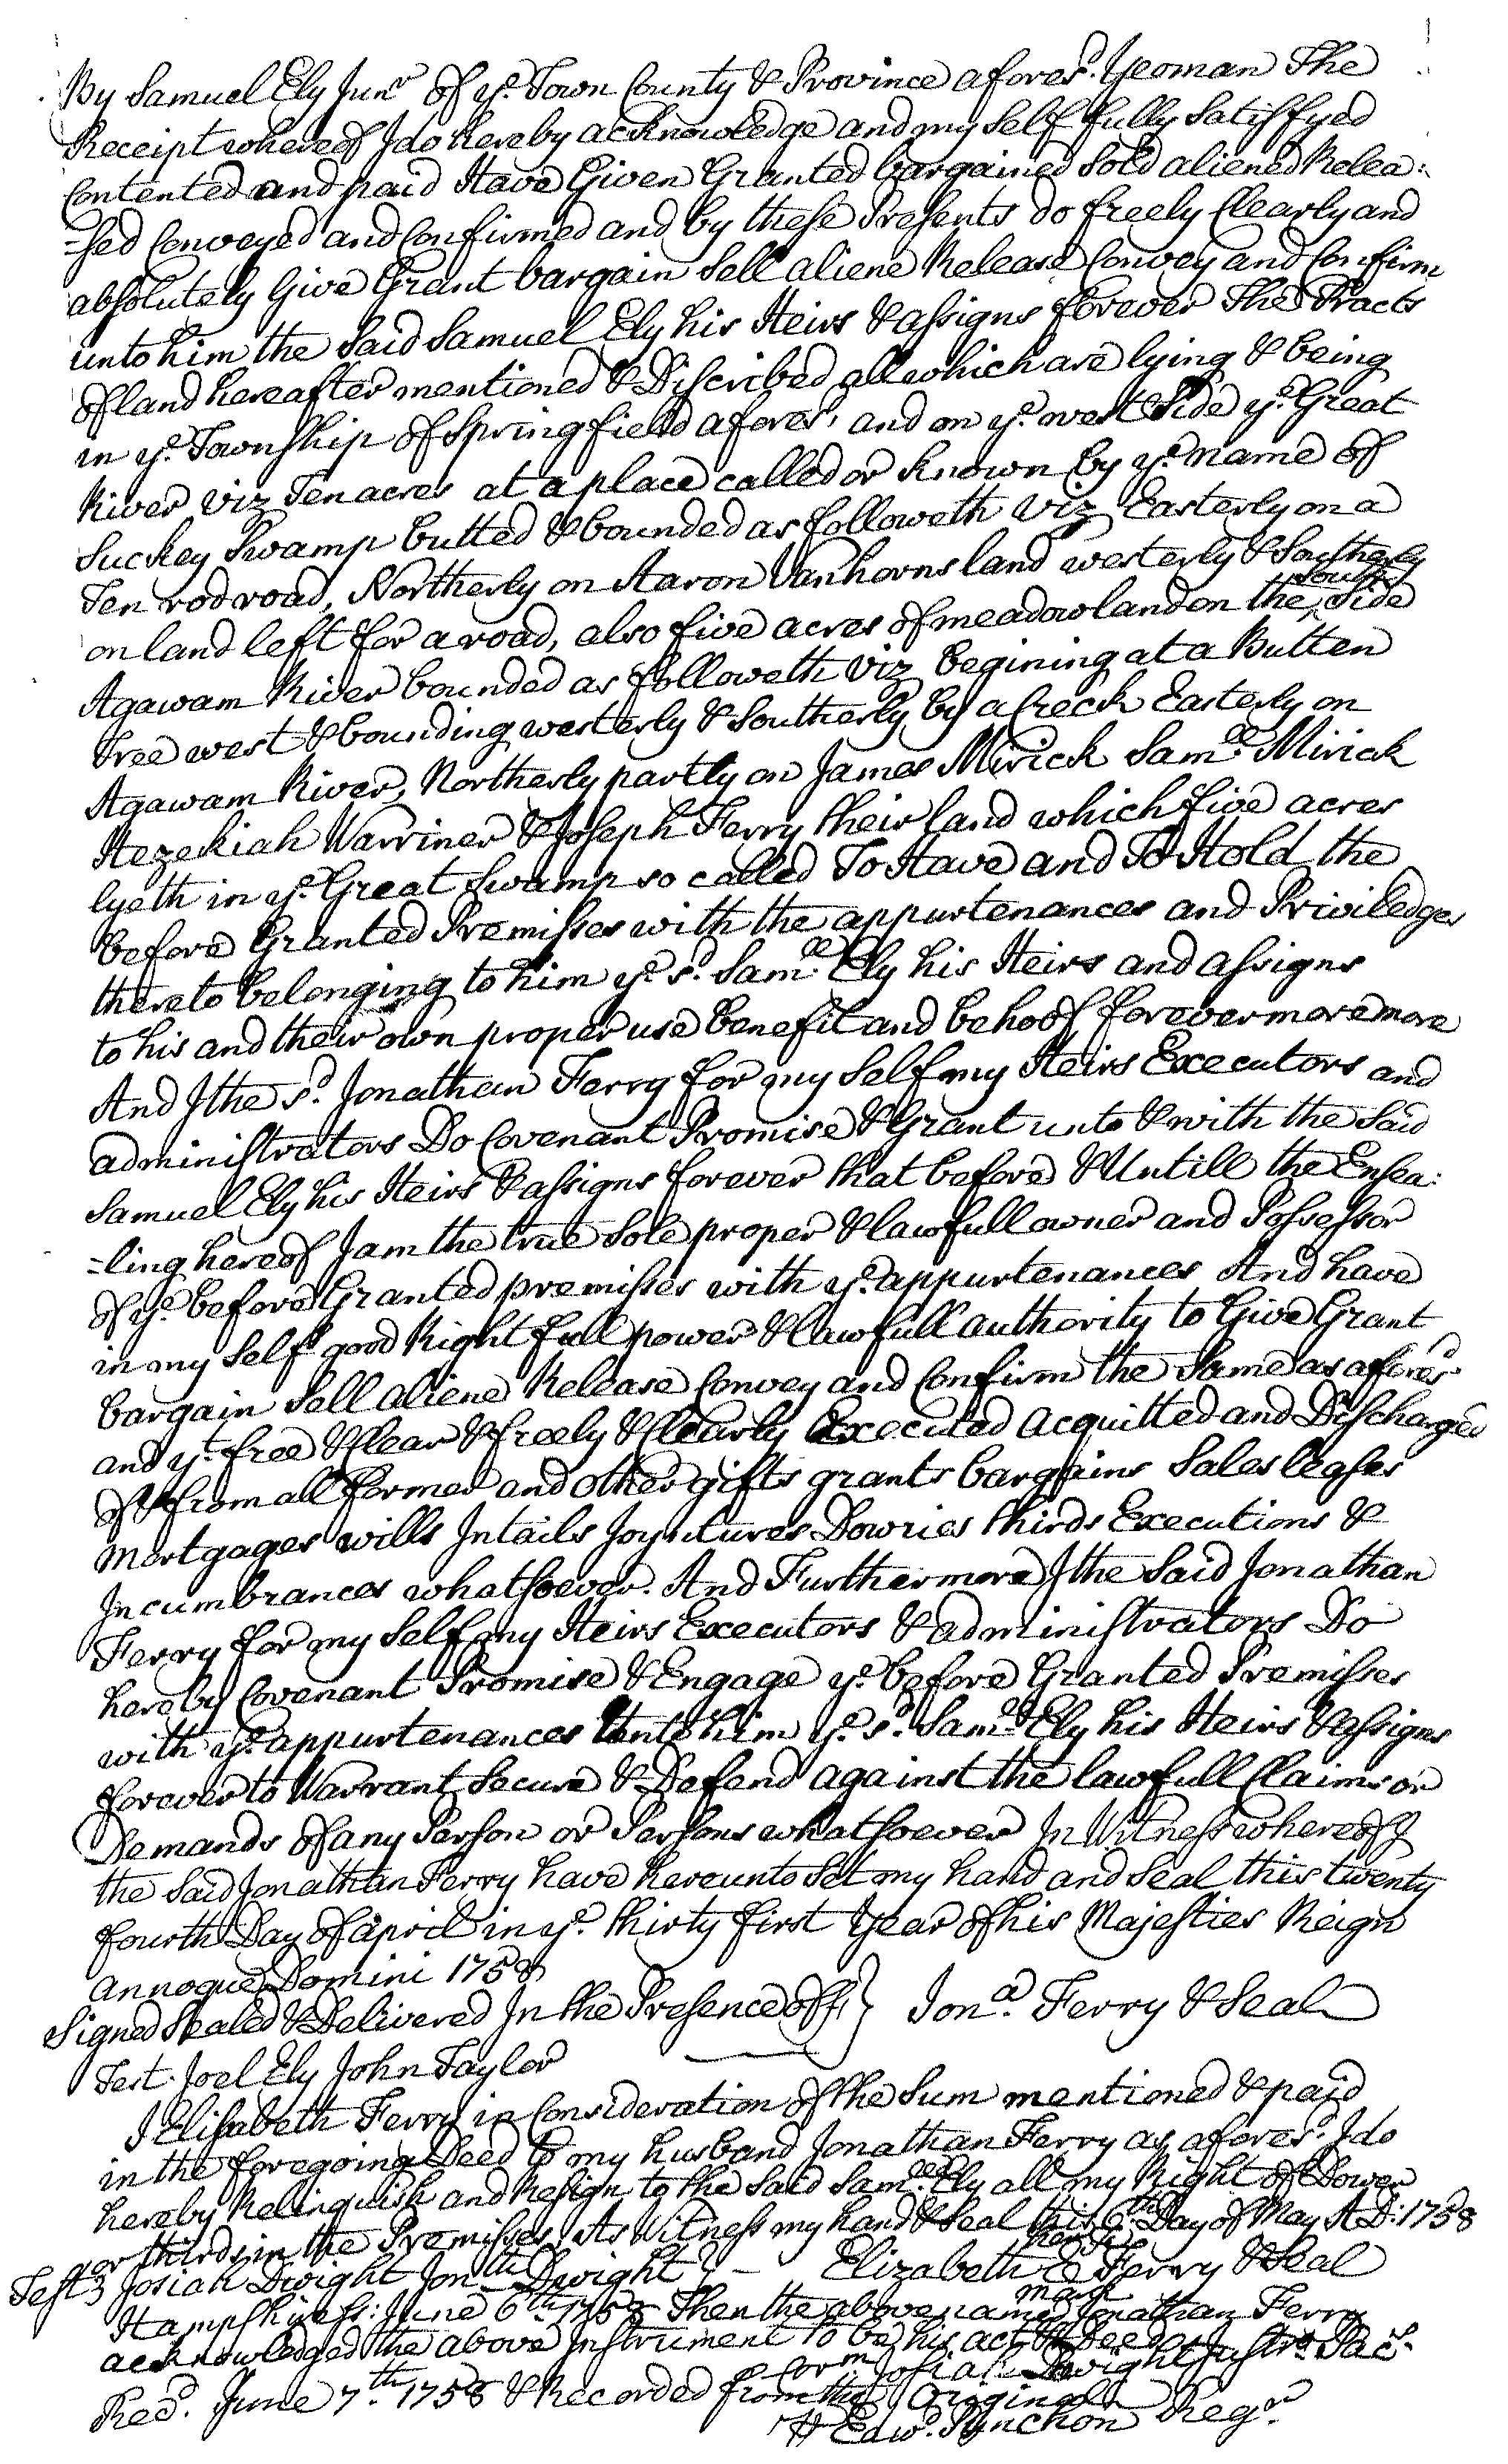 By Samuel Ely Junr. of ye. Town County & Province afores.d Yeoman The
Receipt whereof I do hereby acknowledge and my self fully Satisfyed
Contented and paid Have Given Granted bargained Sold aliened Relea:
=sed Conveyed and Confirmed and by these Presents do freely Clearly and
absolutely Give Grant bargain Sell aliene Release Convey and Confirm
unto him the Said Samuel Ely his Heirs & assigns forever The Tracts
of land hereafter mentioned & Discribed all which are lying & being
in ye. Township of Springfield afores.d and on ye. west Side ye. Great
River viz Ten acres at a place called or known by ye. name of
Suckey Swamp butted & bounded as followeth viz Easterly on a
Ten rod road, Northerly on Aaron Vanhorns land westerly & Southerly
on land left for a road, also five acres of meadow land on the South Side
Agawam River bounded as followeth viz begining at a Butten
tree west & bounding westerly & Southerly by a Creek Easterly on
Agawam River, Northerly partly on James Mirick Sam.ll Mirick
Hezekiah Warriner & Joseph Ferry their land which five acres
lyeth in ye. Great Swamp so called To Have and To Hold the
before Granted Premisses with the appurtenances and Priviledges
thereto belonging to him ye. s.d Sam.ll Ely his Heirs and assigns
to his and their own proper use benefit and behoof forevermoremore
And I the s.d Jonathan Ferry for my Self my Heirs Executors and
administrators Do Covenant Promise & Grant unto & with the Said
Samuel Ely his Heirs & assigns forever that before & Untill the Ensea:
=ling hereof I am the true Sole proper & lawfull owner and Possessor
of ye. before Granted premisses with ye. appurtenances And have
in my Self good Right full power & lawfull authority to Give Grant
bargain Sell aliene Release Convey and Confirm the Same as afores.d
and yt. free & Clear & freely & Clearly Executed acquitted and Discharged
of & from all former and other gifts grants bargains Sales leases
mortgages wills Intails Joyntures Dowries thirds Executions &
Incumbrances whatsoever. And Furthermore I the Said Jonathan
Ferry for my Self my Heirs Executors & administrators Do
hereby Covenant Promise & Engage ye. before Granted Premisses
with ye. appurtenances Unto him ye. s.d Sam.ll Ely his Heirs & assigns
forever to Warrant Secure & Defend against the lawfull Claims or
Demands of any Person or Persons whatsoever In Witness whereof I
the Said Jonathan Ferry have hereunto Set my hand and Seal this twenty
fourth Day of april in ye. thirty first Year of his Majesties Reign
annoque Domini 1758
Signed Sealed & Delivered In the Presence off } Jon.a Ferry & Seal
Test. Joel Ely John Taylor
I Elisabeth Ferry in Consideration of the Sum mentioned & paid
in the foregoing Deed to my husband Jonathan Ferry as afores.d I do
hereby Relinquish and Resign to the Said Sam.ll Ely all my Right of Dower
or thirds in the Premisses As Witness my hand & Seal this 6th Day of May A D: 1758
Test Josiah Dwight Jonth. Dwight } - Elizabeth E Ferry & Seal
her
mark
Hampshire ss: June 6th 1758 Then the above named Jonathan Ferry
acknowledged the above Instrument to be his act & Deed
Cor.m Josiah Dwight Just.e Pac.s
Rec.d June 7.th 1758 & Recorded from the Original
Edw.d Pynchon Reg.r